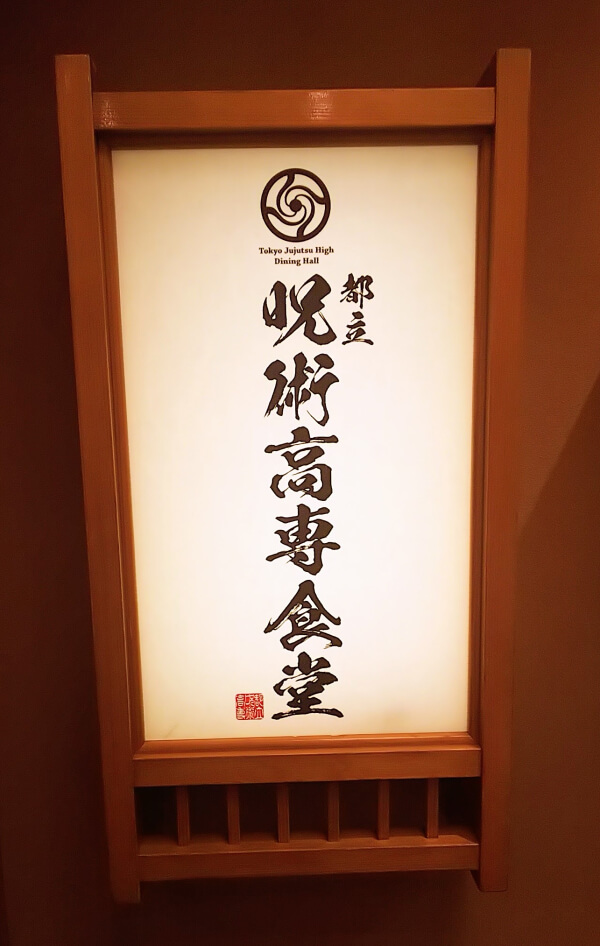 Tokyo Jujutsu High
Dining Hall
都立
呪術高専食堂